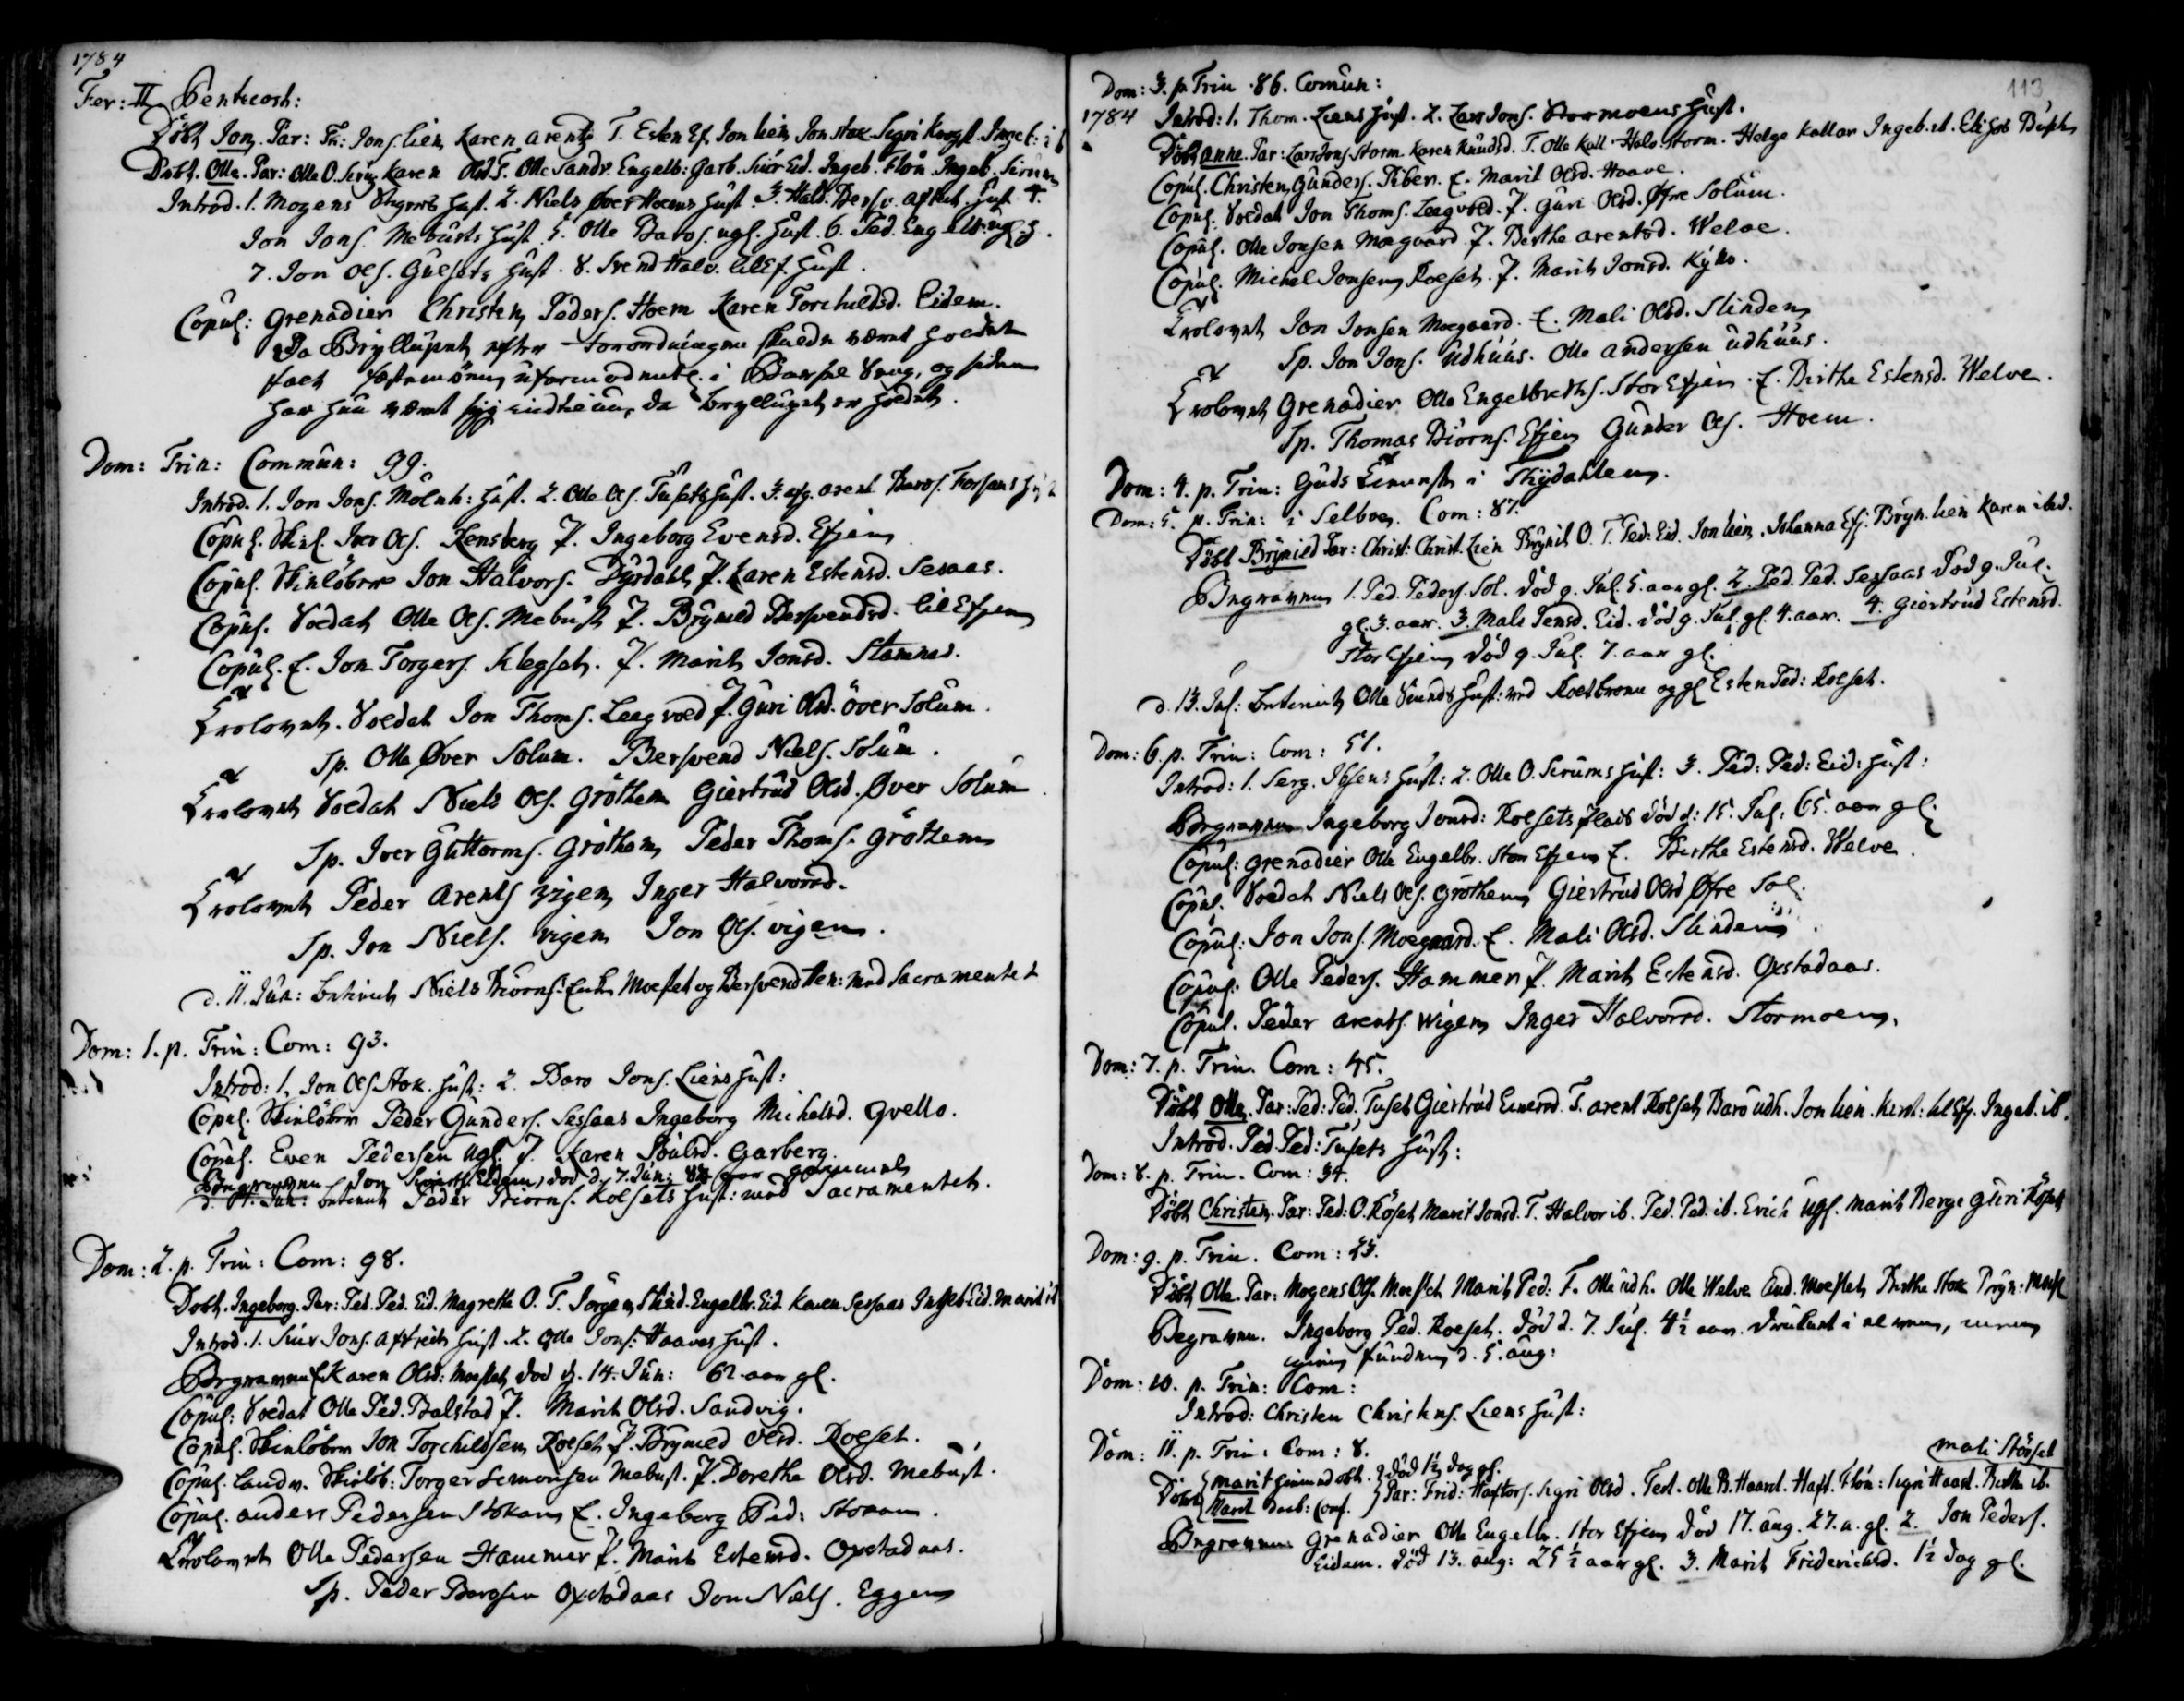 1784
Fer: II Pentecost:
Döbt Jon. Par: Jons. lien Karen arents. T. Esten Ef. Jon lien, Jon stok Sigri
Döbt. Olle. Par: Olle O. Karen Olsd. T. Olle Sandv. Engelb: Garb. Siur Eid. Ingeb. Flön. Ingeb.
Introd. 1. Mogens hust. 2. Niels Över Hoems hust. 3. Hald. hust. 4.
Jon Jons. Mebusts hust. 5. Olle Baros. ugl. hust. 6. Ped. Eng
7. Jon Ols. Gulsets hust. 8. Svend Halv. lilEf. hust.
Copul: Grenadier Christen Peders. Hoem Karen Torchildsd. Eidem.
Da Bryllupet efter Forordningen skulde været holdet
i og siden
har hun været syg indtil nu, da bryllupet er holdet.
Dom: Trin: Commun: 99.
Introd. 1. Jon Jons. Mölnh: hust. 2. Olle Ols. Tusets hust. 3. arent Baros.
Copul. Skil. Iver Ols. Rensberg P. Ingeborg Evensd. Efjem
Copul. Skilöber Jon Halvors. Dyrdahl P. Karen Estensd. Sesaas.
Copul. Soldat Olle Ols. Mebust P. Brynild Bersvendsd. lilEfjem
Copul. E. Jon Torgers. Klegset. P. Marit Jonsd. Stamnes.
Trolovet. Soldat Jon Thoms. Leegvold P. Guri Olsd. över Solum.
Sp. Olle Över Solum. Bersvend Niels. Solum.
Trolovet Soldat Niels Ols. Gröthem Giertrud Olsd. Över Solum.
Sp. Iver Guttorms. Gröthem, Peder Thoms. Gröthem
Trolovet Peder Arents. vigen, Inger Halvorsd.
Sp. Jon Niels. vigen Jon Ols. vigen.
d. 11. Jun: betient Niels Biörns. Moeslet og Bersvend med Sacramentet
Dom: 1. p. Trin: Com: 93.
Introd: 1. Jon Ols. Stok. hust: 2. Baro Jons. Liens hust:
Copul. Skilöber Peder Gunders. Sessaas Ingeborg Michelsd. Qvello.
Copul. Even Pedersen Ugl. P. Karen Poulsd. Garberg.
Begraven Jon Eidem, död d. 7. Jun: aar gammel
d. Jun: betient Peder Biörns. Rolsets hust: med Sacramentet.
Dom: 2. p. Trin: Com: 98.
Döbt. Ingeborg. Par: Ped. Ped. Eid. Magrethe O. T. Jörgen Slind. Engelbr. Eid. Karen Sessaas Ingeb. Eid. marit ib
Introd. 1. Siur Jons. Aftreits hust. 2. Olle Jons. Haaves hust.
Begraven Karen Olsd. Moeslet, död d. 14. Jun: 62 aar gl.
Copul: Soldat Olle Ped. Balstad P. Marit Olsd. Sandvig.
Copul. Skilöber Jon Torchildsen Rolset P. Brynild Olsd. Rolset.
Copul. landv. Skilöb: Torger Semonsen Mebust. P. Dorethe Olsd. Mebust.
Copul. anders Pedersen Stokan E. Ingeborg Ped: Stokan.
Trolovet Olle Pedersen Hammer P. Marit Estensd. Oxstadaas.
Sp. Peder Barosen Oxstadaas Jon Niels. Eggen
113
Dom: 3. p. Trin 86. Comun:
1784 Introd: 1. Thom. Liens hust. 2. Lars Jons. Stormoens hust.
Döbt anne. Par: Lars Jons. Storm. Karen Knudsd. T. Olle Kall. Halv. Storm. Helge Kallar Ingeb. ib. Elisab
Copul. Christen Gunders. E. Marit Olsd. Haave.
Copul. Soldat Jon Thoms. Leegvold. P. Guri Olsd. Øfre Solum.
Copul. Olle Jonsen Moegaard P. Berthe arentsd. Welve.
Copul. Michel Jensen, Rolset. P. Marit Jonsd. Kyllo.
Trolovet Jon Jonsen Moegaard. E. Mali Olsd. Slindem
Sp. Jon Jons. Udhuus. Olle andersen Udhuus.
Trolovet Grenadier Olle Engelbrethss. StorEfjem. E. Birthe Estensd. Welve.
Sp. Thomas Biörns. Efjem Gunder Ols. Hoem.
Dom: 4. p. Trin: Guds Tieneste i Thydahlen.
Dom: 5. p. Trin: i Selboe. Com: 87.
Döbt Brynild Par: Christ: Christ. Lien Brynil O. T. Ped: Eid. Jon lien. Johanna Efj. Bryn. lien Karen ibid.
Begraven 1. Ped. Peders. Sol. död 9. Jul. 5. aar gl. 2. Ped. Ped. Sessaas död 9. Jul.
gl. 3. aar. 3. Mali Jensd. Eid. död 9. Jul. gl. 4. aar. 4. Giertrud Estensd.
StorEfjem död 9. Jul. 7. aar gl.
d. 13. Jul: betient Olle hust: ved og Esten Ped: Rolset.
Dom: 6. p. Trin: Com: 51.
Introd: 1. Serg. Ibsens hust: 2. Olle O. Serums hust: 3. Ped: Ped: Eid: hust:
Begraven Ingeborg Jonsd: Rolsets plads död d: 15. Jul: 65. aar gl.
Copul: Grenadier Olle Engelbr. Stor Efjem E. Birthe Estensd. Welve.
Copul. Soldat Niels Ols. Gröthem Giertrud Olsd Øfre Sol.
Copul: Jon Jons. Moegaard. E. Mali Olsd. Slindem.
Copul. Olle Peders. Hammer P. Marit Estensd. Oxstadaas.
Copul. Peder arents. Wigen, Inger Halvorsd. Stormoen.
Dom: 7. p. Trin. Com: 45.
Döbt Olle. Par: Ped: Ped. Tuset Giertrud T. arent Rolset, Baro udh. Jon lien. lilEfj. Ingeb. ib.
Introd. Ped. Ped: Tusets hust:
Dom: 8. p. Trin. Com: 34.
Döbt Christen. Par: Ped. O. Röset Marit Jonsd. T. Halvor ib. Ped. Ped. ib. Erich Ugl. Marit Berge Guri Röset
Dom: 9. p. Trin. Com: 23.
Döbt Olle. Par: Mogens Ols. Moeslet Marit Ped: T. Olle udh. Olle Welve And. Moeslet Birthe Stok Bryn: Moesl
Begraven. Ingeborg Ped. Rolset. Död d. 7. Jul. 4½ aar. druknet i elven,
igien funden d. 5. aug:
Dom: 10. p. Trin: Com:
Introd: Christen Christens. Liens hust:
Dom: 11. p. Trin: Com: 8.
mali Störset
Döbt Marit hiemedöbt. död 1½ dag gl.
Marit Par: Frid: Haftors. Sigri Olsd. Test. Olle B. Haard. Haft. Flön: Sigri Haard. Birthe ib.
Begraven Grenadier Olle Engelbr. Stor Efjem död 17. aug. 27. a. gl. 2. Jon Peders.
Eidem. död 13. aug: 25½ aar gl. 3. Marit Friderichsd. 1½ dag gl.